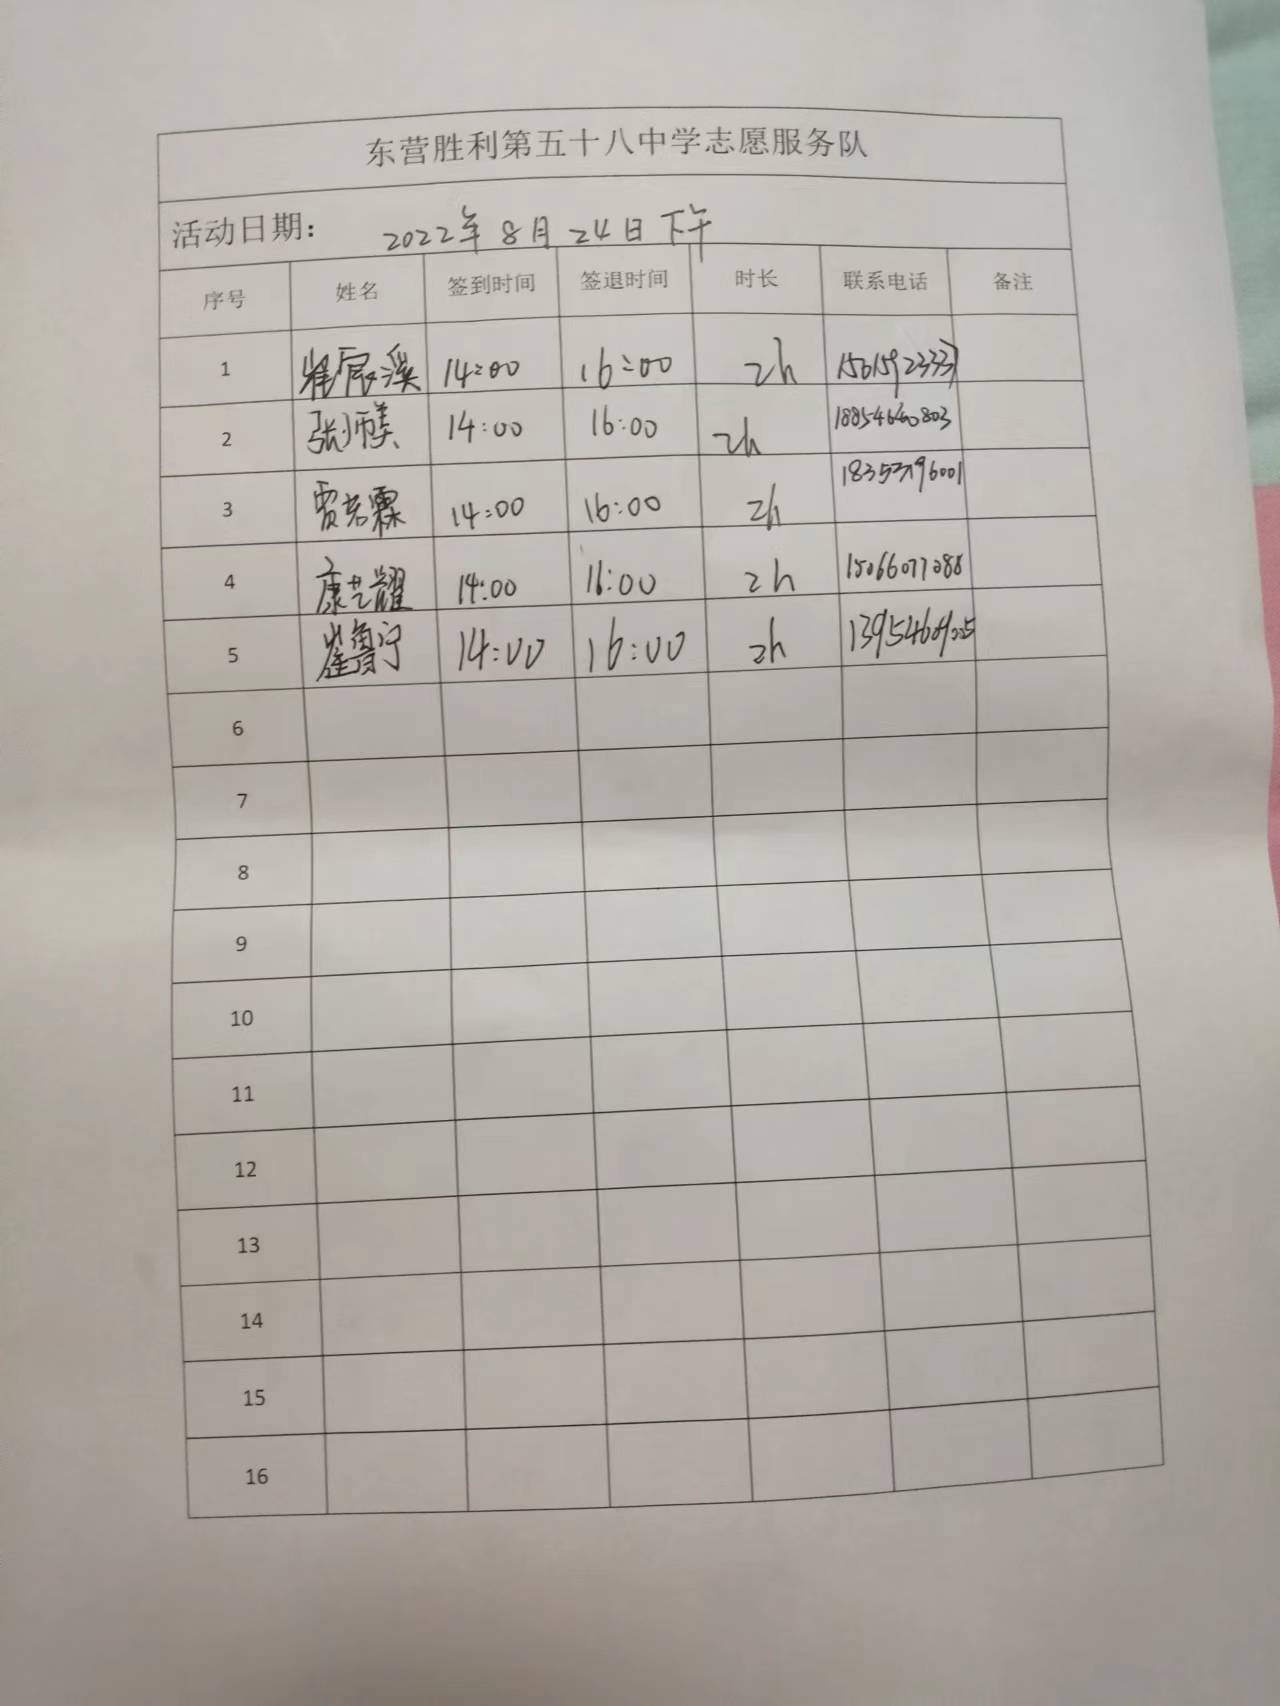 东营胜利第五十八中学志愿服务队
活动日期： 2022年8月24日下午
序号 姓名 签到时间 签退时间 时长 联系电话 备注
1 14:00 16:00 2h
2 张师美 14:00 16:00 2h 18854640803
3 贾若霖 14:00 16:00 2h
4 康艺耀 14:00 16:00 2h 15066077088
5 崔鲁宁 14:00 16:00 2h
6
7
8
9
10
11
12
13
14
15
16